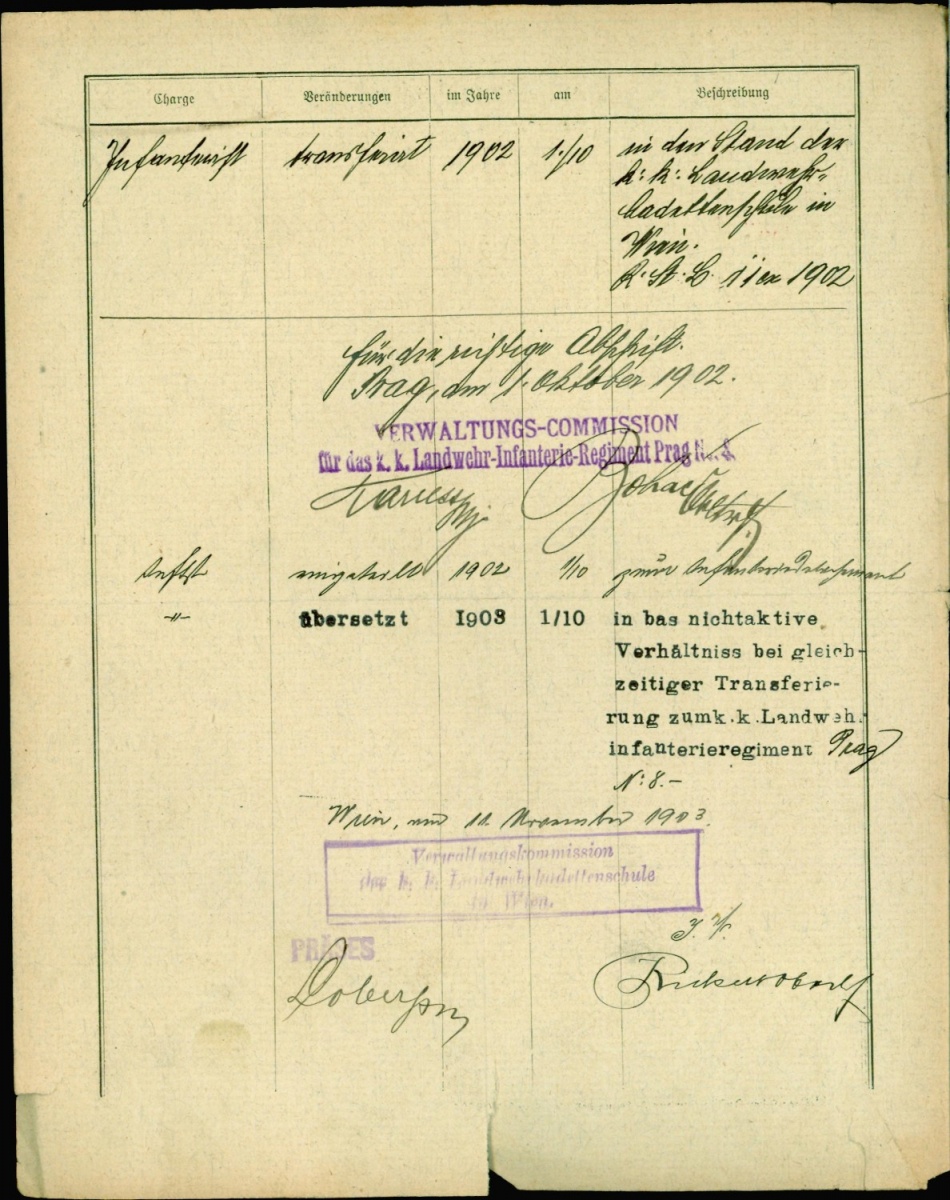 Charge Veränderungen im Jahre am Beschreibung
Infanterist transferirt 1902 1./10 in den Stand der
k: k: Landwehr-
cadettenschule in
Wien.
1902
Für die richtige Abschrift.
Prag, am 1. Oktober 1902.
VERWALTUNGS-COMMISSION
für das k. k. Landwehr-Infanterie-Regiment Prag No. 8.
eingeteilt 1902 1/10 zum
-"- übersetzt 1903 1/10 in bas nichtaktive
Verhältniss bei gleich-
zeitiger Transferie-
rung zumk.k.Landweh.
infanterieregiment Prag
N: 8.-
Wien, am 11. November 1903.
Verwaltungskommission
der k. k. Landwehrkadettenschule
in Wien.
PRÄSES